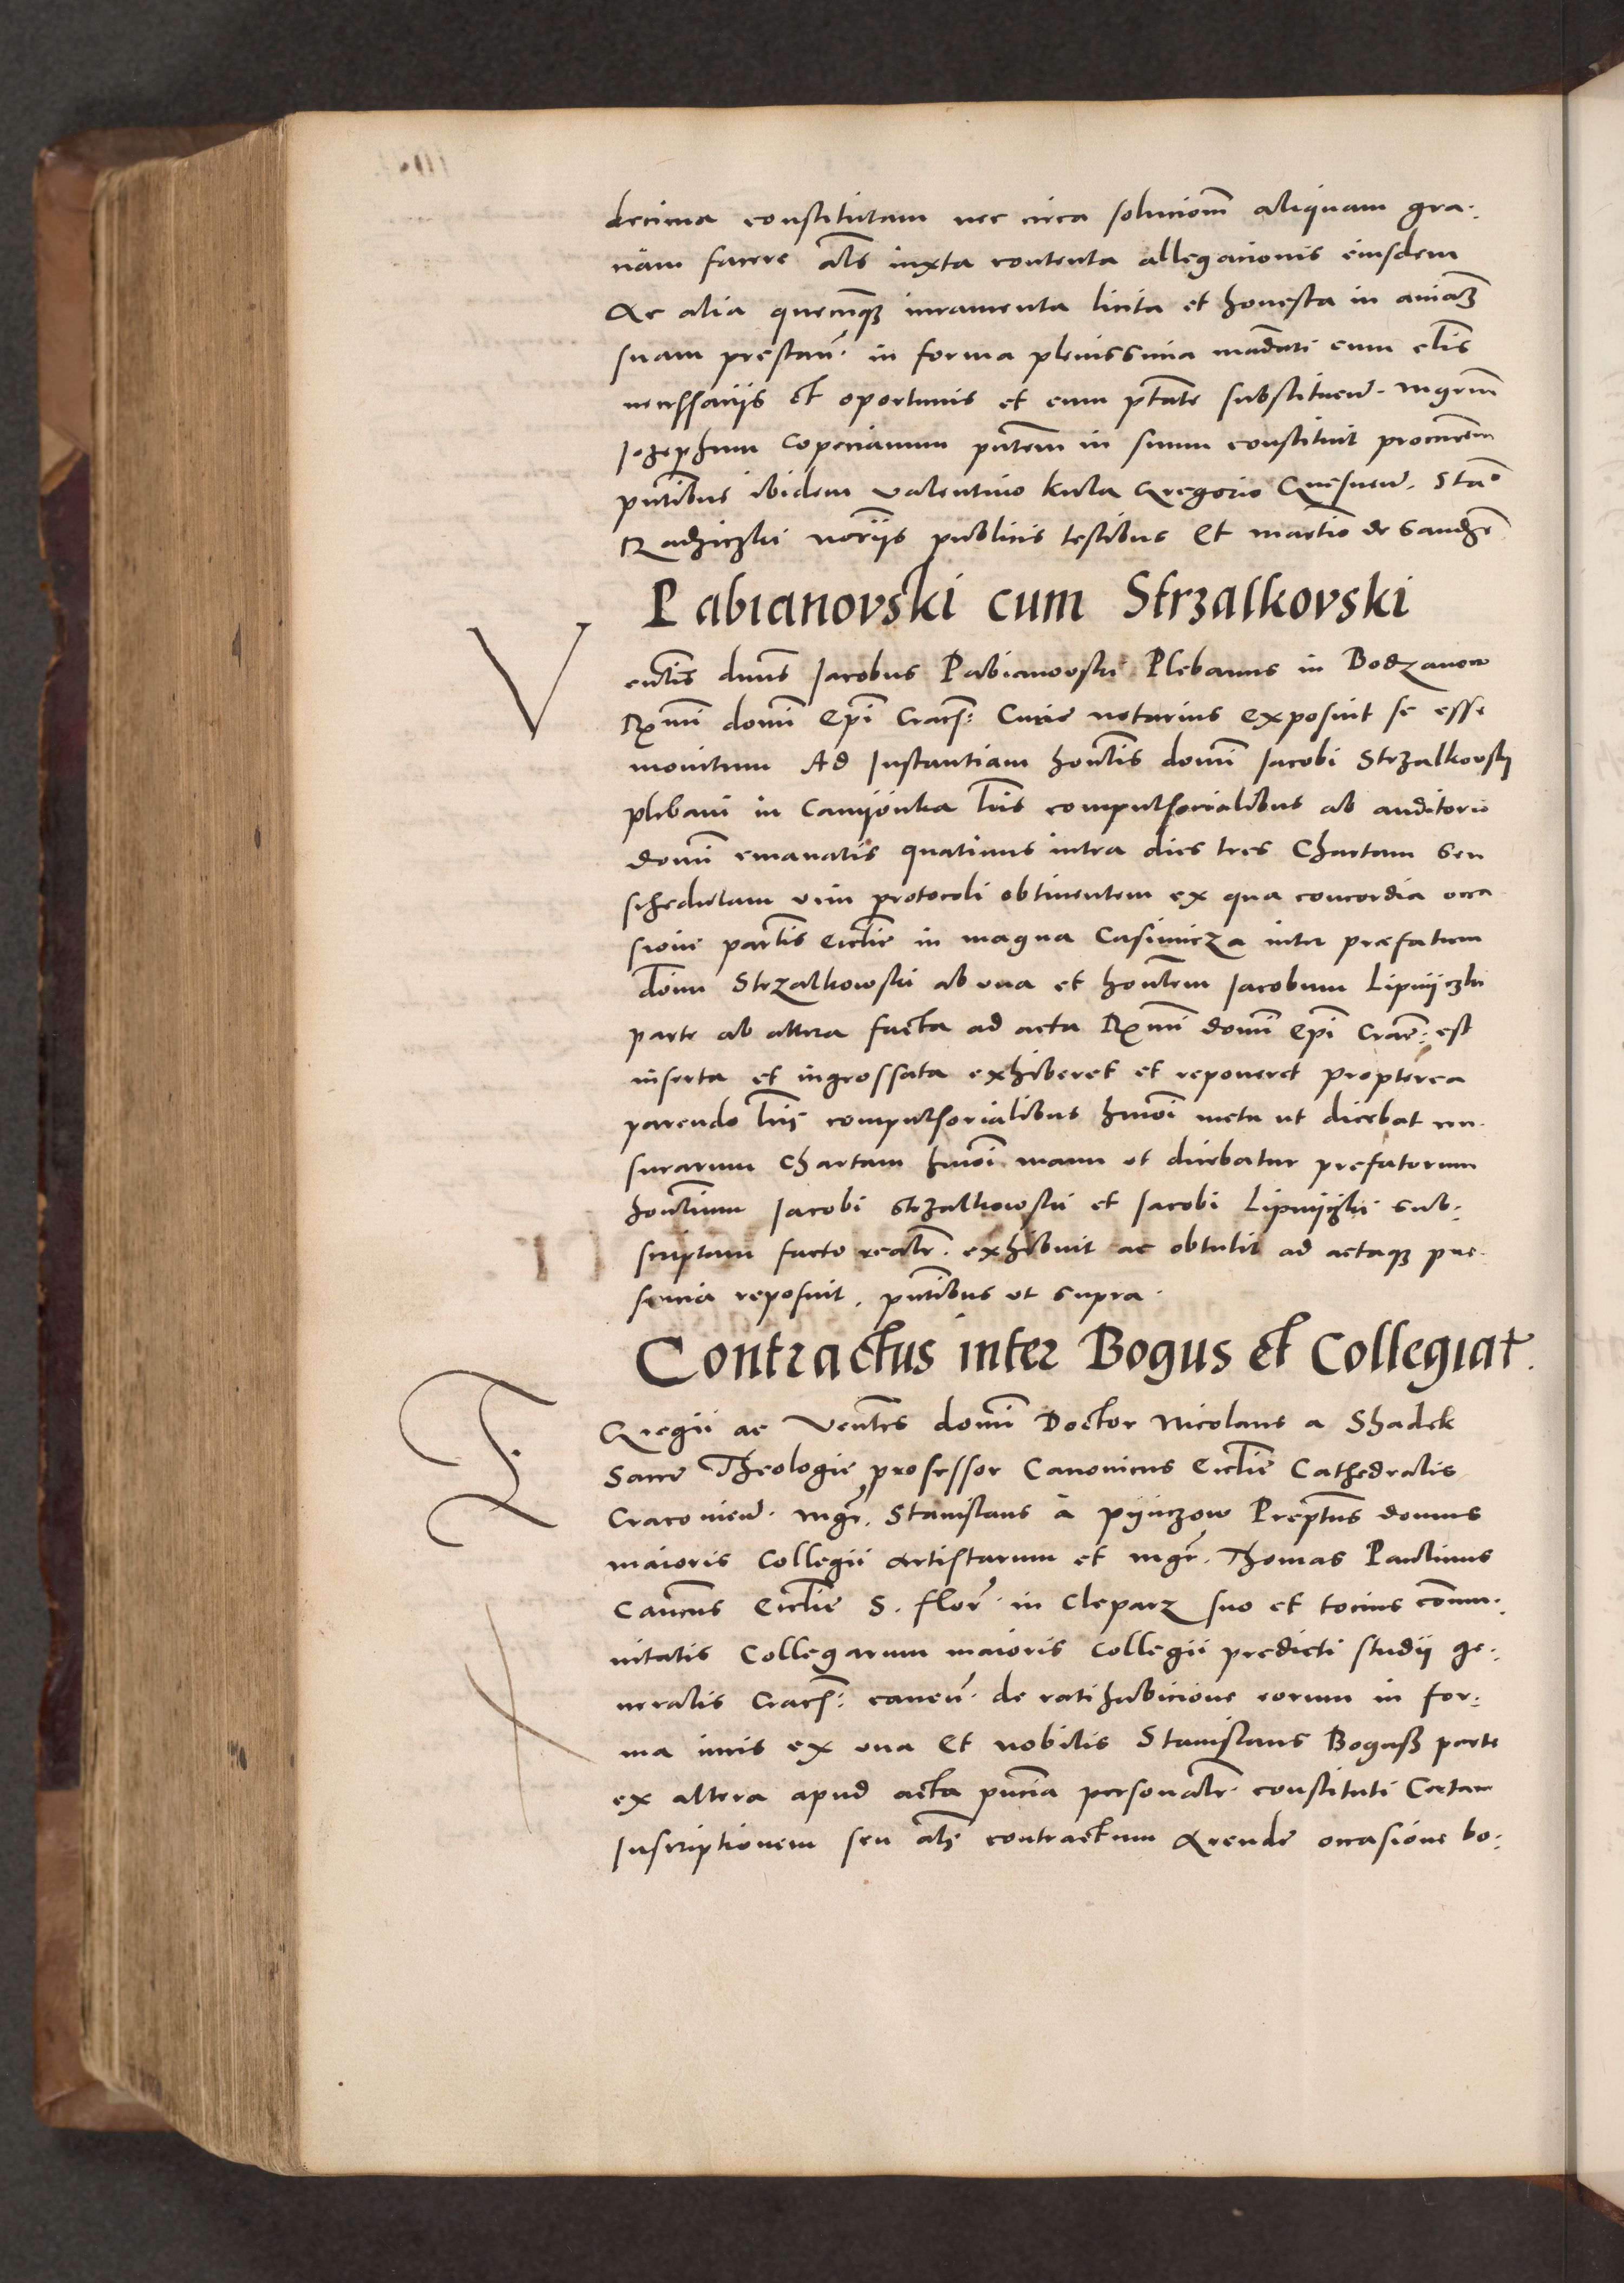 decima constitutam nec circa soluciom̄ aliquam gra-
nam facere al̄s iuxta contenta allegacionis eiusdem
Ac alia quecūq3 iuramenta licita et honesta in aniā3
suam prestan̄. in forma plenissima mādati cum cl̄is
necessariis et oportunis et cum p̄tāte substituen̄. mgr̄m
Jozephum Copecianum pn̄tem in suum constituit procur̄em
pn̄tibus ibidem Valentino Kula Gregorio Quesnen̄. Sta°
Radziczki nōriis publicis testibus Et martīo de Sandz̄e
Pabianovski cum Strzalkovski
V
en̄lis dn̄us Jacobus Pabianovski Plebanus in Bodzanow
Rx̄mi domī Ep̄i Cracῡ: Curie notarius exposuit se esse
monitum Ad Instantiam hon̄lis domī Jacobi Strzalkovskij
plebani in Camijonka lr̄is compulsorialibus ab auditorio
domī emanatis quatinus intra dies tres Chartam seu
schedulam vim protocoli obtinentem ex qua concordia occa
sione partīs Ecl̄ie in magna Casimirza inter præfatum
dōm Strzalkowski ab una et hon̄lem Jacobum Lipnijczki
parte ab altera facta ad acta Rx̄mi domī Ep̄i Crac̄: est
inserta et ingrossata exhiberet et reponeret propterea
parendo lr̄is compulsorialibus hmōi metu ut dicebat cen-
surarum Chartam hmōi manu ut dicebatur prefatorum
hon̄lium Jacobi Strzalkowski et Jacobi Lipnijczki sub-
scriptam facto realr̄. exhibuit ac obtulit ad actaq3 pre-
sencia reposuit. pn̄tibus ut supra.
Contractus inter Bogus et Collegiat.
E
Gregii ac Ven̄les domī Doctor Nicolaus a Shadek
Sacre Theologie professor Canonicus Ecl̄ie Cathedralis
Cracovien̄. mgr̄. Stanislaus à Pijnczow Prep̄tus domus
maioris Collegii Artistarum et mgr̄. Thomas Paulinus
Can̄cus Ecl̄ie S. Flor̄ in Cleparz suo et tocius comm̄-
nitatis Collegarum maioris Collegii predicti studii ge-
neralis Cracῡ: caven̄. de ratihabicione eorum in for-
ma iuris ex una Et nobilis Stanislaus Bogusz parte
ex altera apud acta pn̄cia personalr̄. constituti Certam
Inscriptionem seu al̄s contractum Arende occasione bo-